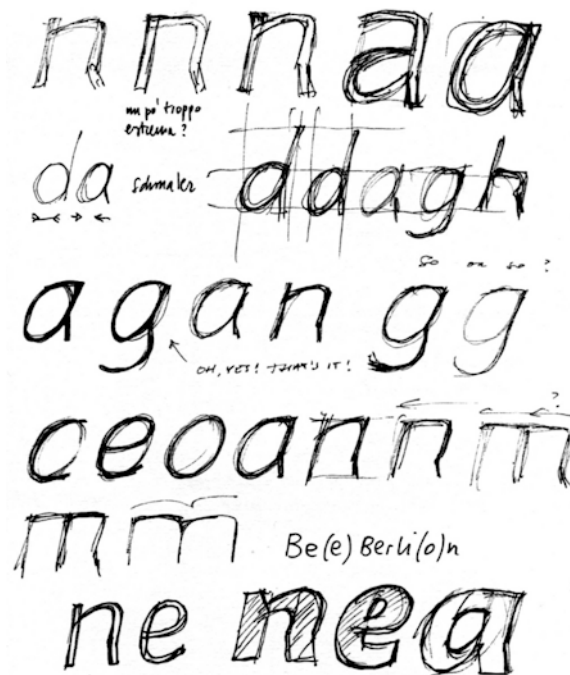 n n n a a
un pó troppo
estrema?
da schmaler ddagh
so or so?
agan gg
OH, YES! THAT'S IT!
ceoannm
?
m m Be(e) Berli(o)n
ne nea